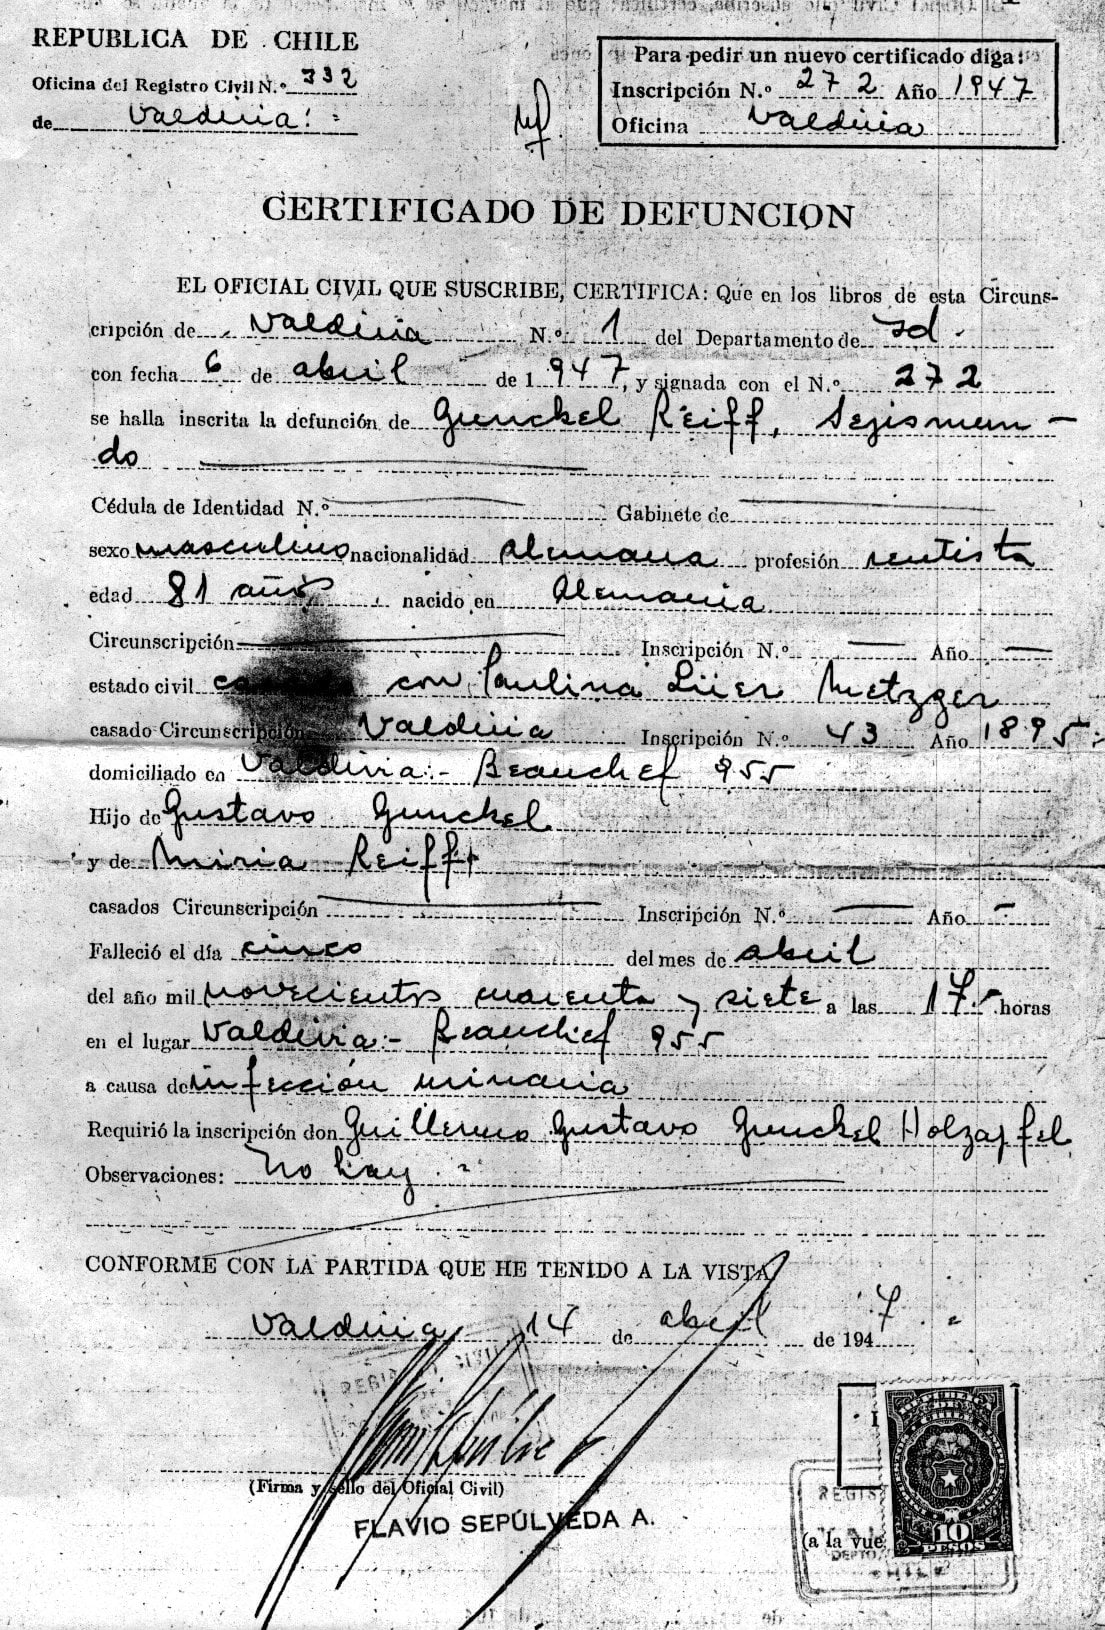 REPUBLICA DE CHILE
Oficina del Registro Civil N.º 332
de Valdivia
Para pedir un nuevo certificado diga:
Inscripción N.º 272 Año 1947
Oficina Valdivia
CERTIFICADO DE DEFUNCION
EL OFICIAL CIVIL QUE SUSCRIBE, CERTIFICA: Que en los libros de esta Circuns-
cripción de Valdivia N.º 1 del Departamento de id.
con fecha 6 de abril de 1947, y signada con el N.º 272
se halla inscrita la defunción de Gunckel Reiff, Sejismun-
do
Cédula de Identidad N.º Gabinete de
sexo masculino nacionalidad alemana profesión rentista
edad 81 años nacido en Alemania
Circunscripción Inscripción N.º Año
estado civil casado con Paulina Lüer Metzger
casado Circunscripción Valdivia Inscripción N.º 43 Año 1895
domiciliado en Valdivia:- Beauchef 955
Hijo de Gustavo Gunckel
y de Miria Reiff
casados Circunscripción Inscripción N.º Año
Falleció el día cinco del mes de abril
del año mil novecientos cuarenta y siete a las 17 horas
en el lugar Valdivia:- Beauchef 955
a causa de infección urinaria
Requirió la inscripción don Guillermo Gustavo Gunckel Holzapfel
Observaciones: No hay
CONFORME CON LA PARTIDA QUE HE TENIDO A LA VISTA
Valdivia 14 de abril de 1947
(Firma y sello del Oficial Civil)
FLAVIO SEPÚLVEDA A.
10
PESOS
(a la vue
REGIS
DEPTO
CHILE